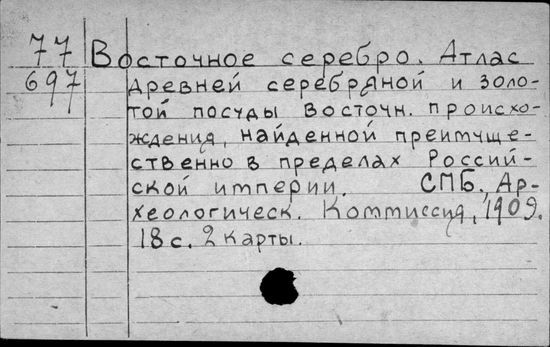 77 Восточное серебро. Атлас
697 древней серебряной и золо-
той посуды восточн. происхо-
ждения, найденной преимуще-
ственно в пределах Россий-
ской империи. СПБ, Ар-
хеологическ. Коммиссия, 1909.
18 с. 2 карты.